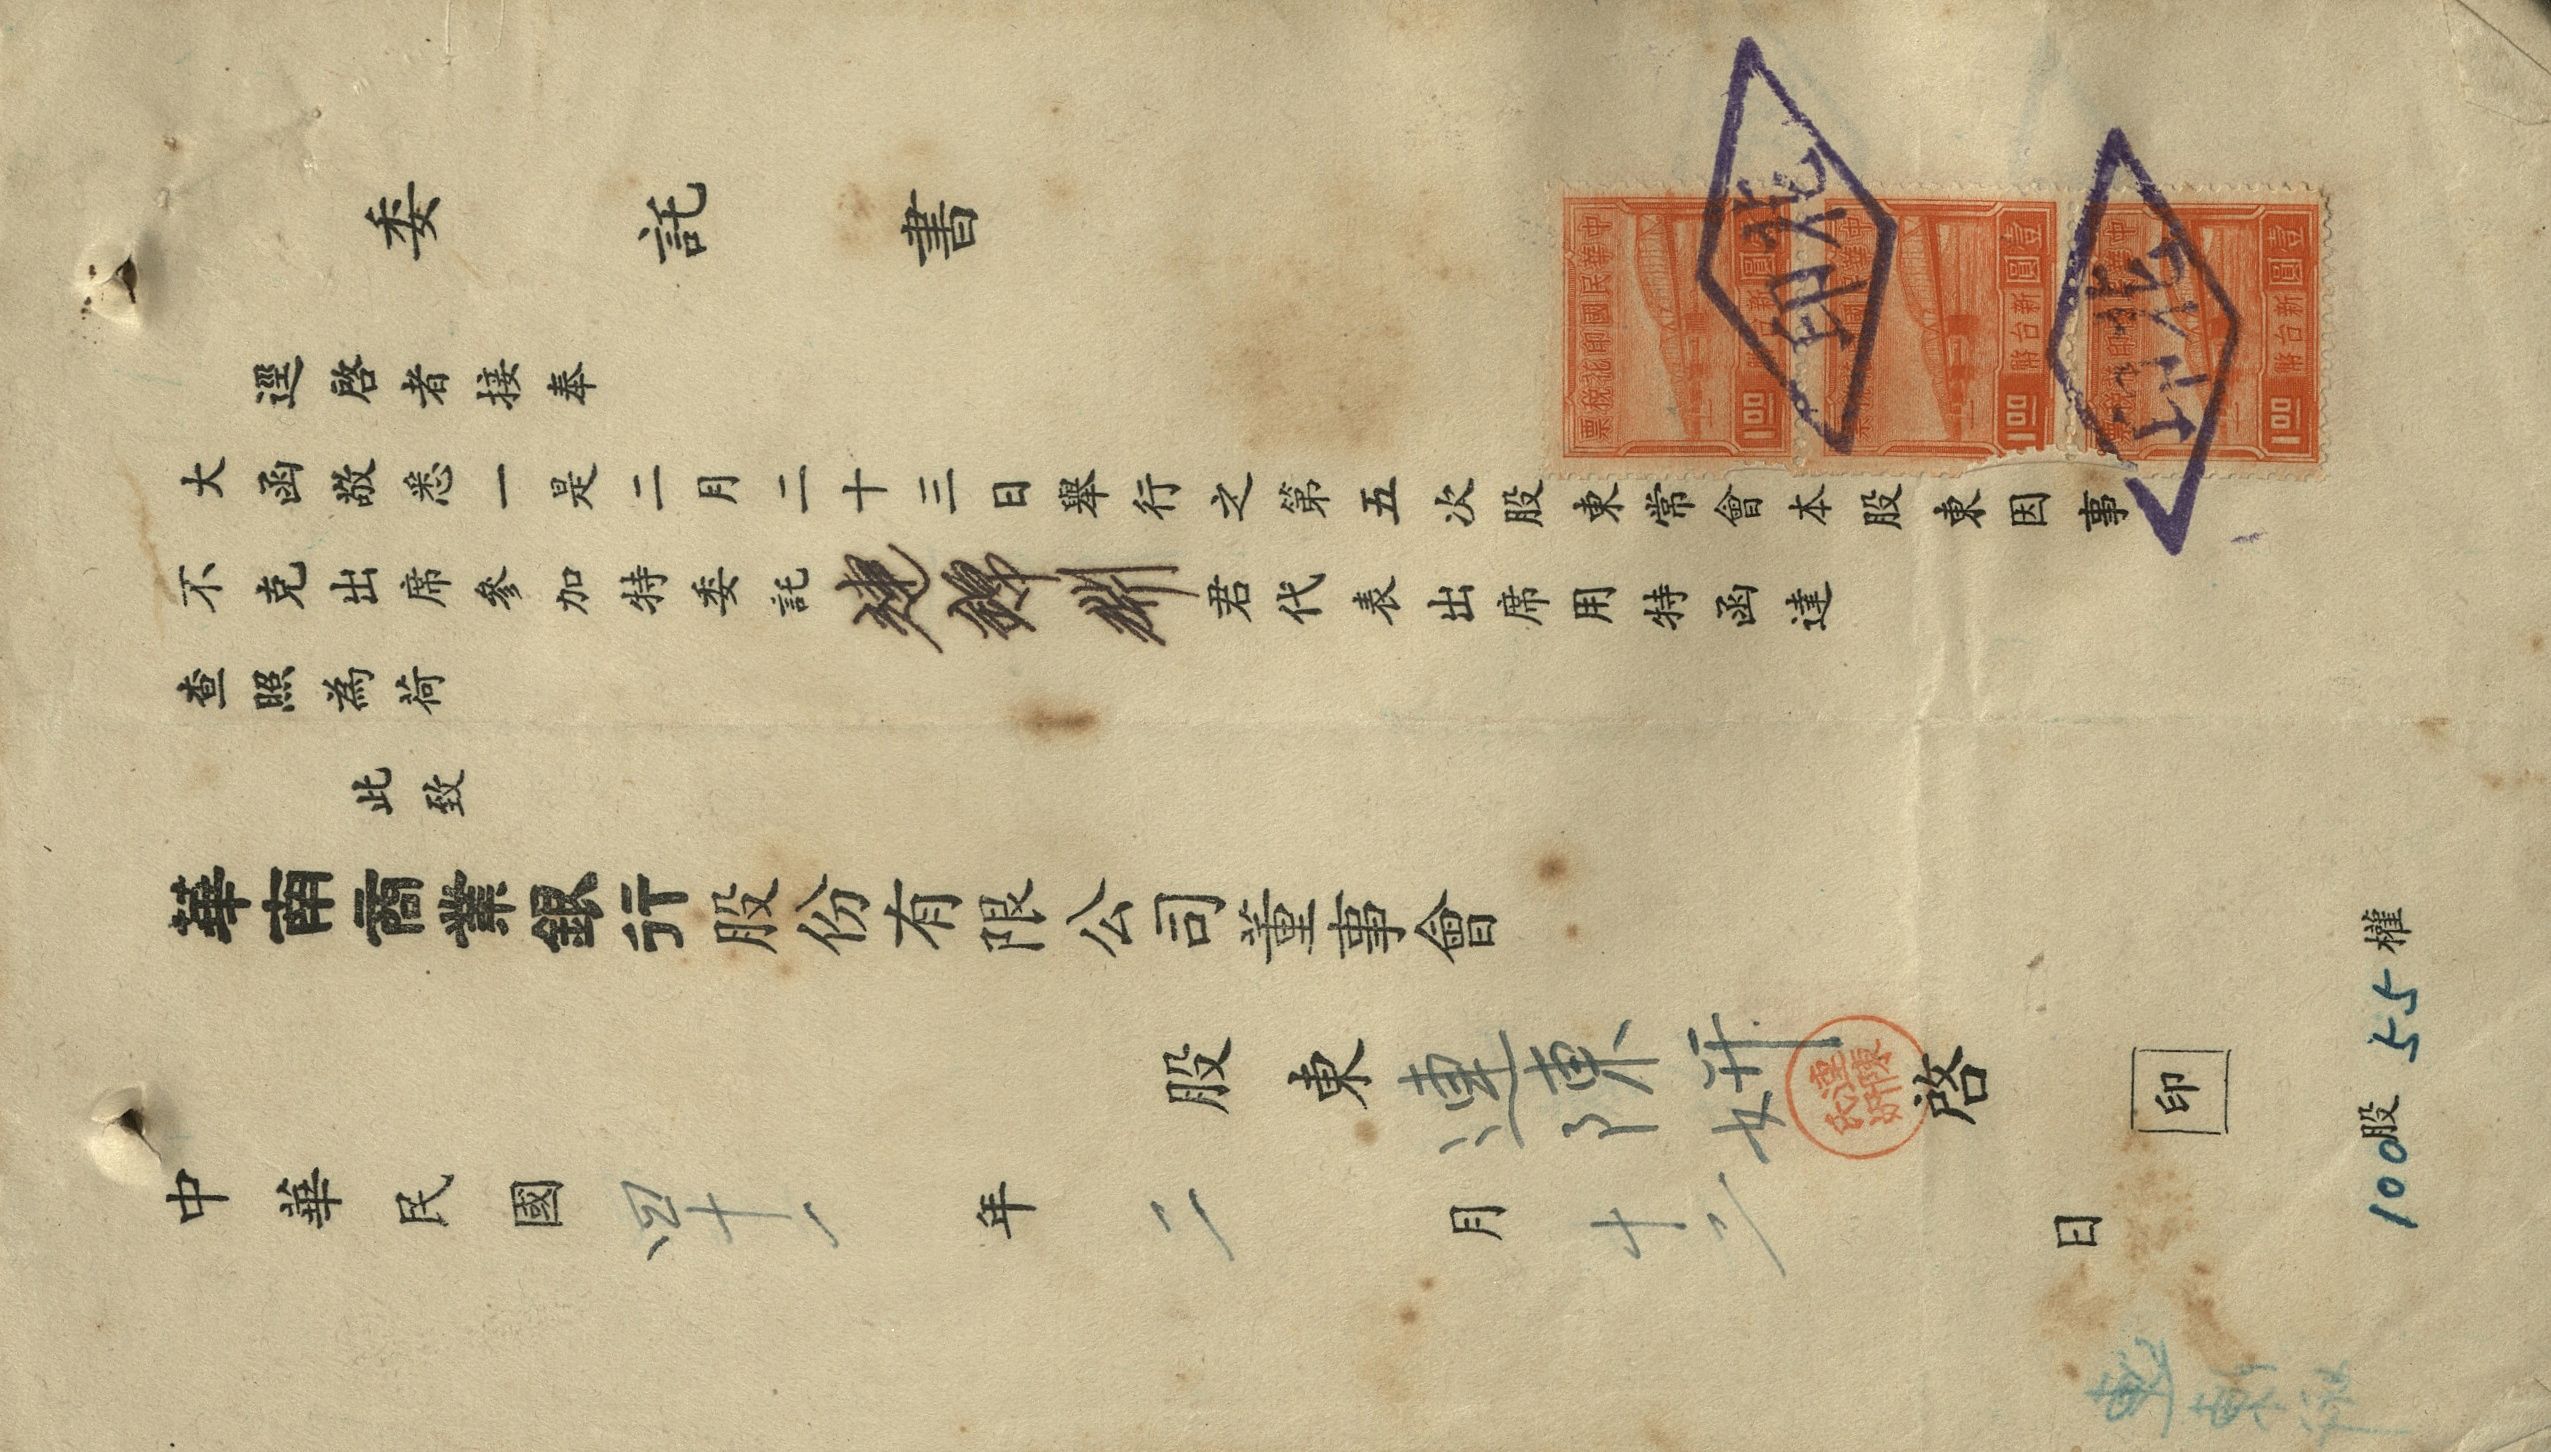 委託書
逕啓者接奉
大函敬悉一是二月二十三日舉行之第五次股東常會本股東因事
不克出席參加特委託連 君代表出席用特函達
查照為荷
此致
華南商業銀行股份有限公司董事會
股東 連陳妍 啓 印
中華民國四十一年二月十二日
100股 55權
中華民國印花稅票
1.00
中華民國印花稅票
壹圓新台幣
1.00
中華民國印花稅票
壹圓新台幣
1.00
印花
印花